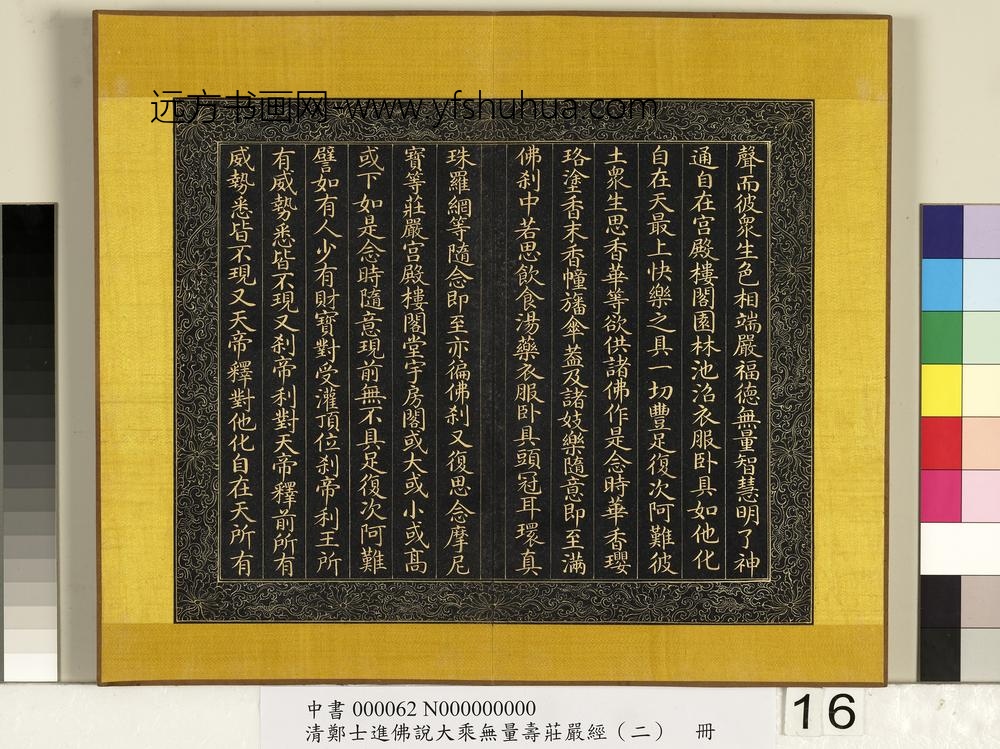 远方书画网-www.yfshuhua.com
聲而彼眾生色相端嚴福德無量智慧明了神
通自在宮殿樓閣園林池沼衣服卧具如他化
自在天最上快樂之具一切豐足復次阿難彼
土眾生思香華等欲供諸佛作是念時華香瓔
珞塗香末香幢旛傘蓋及諸妓樂隨意即至滿
佛刹中若思飲食湯藥衣服卧具頭冠耳環真
珠羅網等隨念即至亦徧佛刹又復思念摩尼
寶等莊嚴宮殿樓閣堂宇房閣或大或小或髙
或下如是念時隨意現前無不具足復次阿難
譬如有人少有財寶對受灌頂位刹帝利王所
有威勢悉皆不現又刹帝利對天帝釋前所有
威勢悉皆不現又天帝釋對他化自在天所有
中書 000062 N000000000
清鄭士進佛說大乘無量壽莊嚴經（二）　冊
16